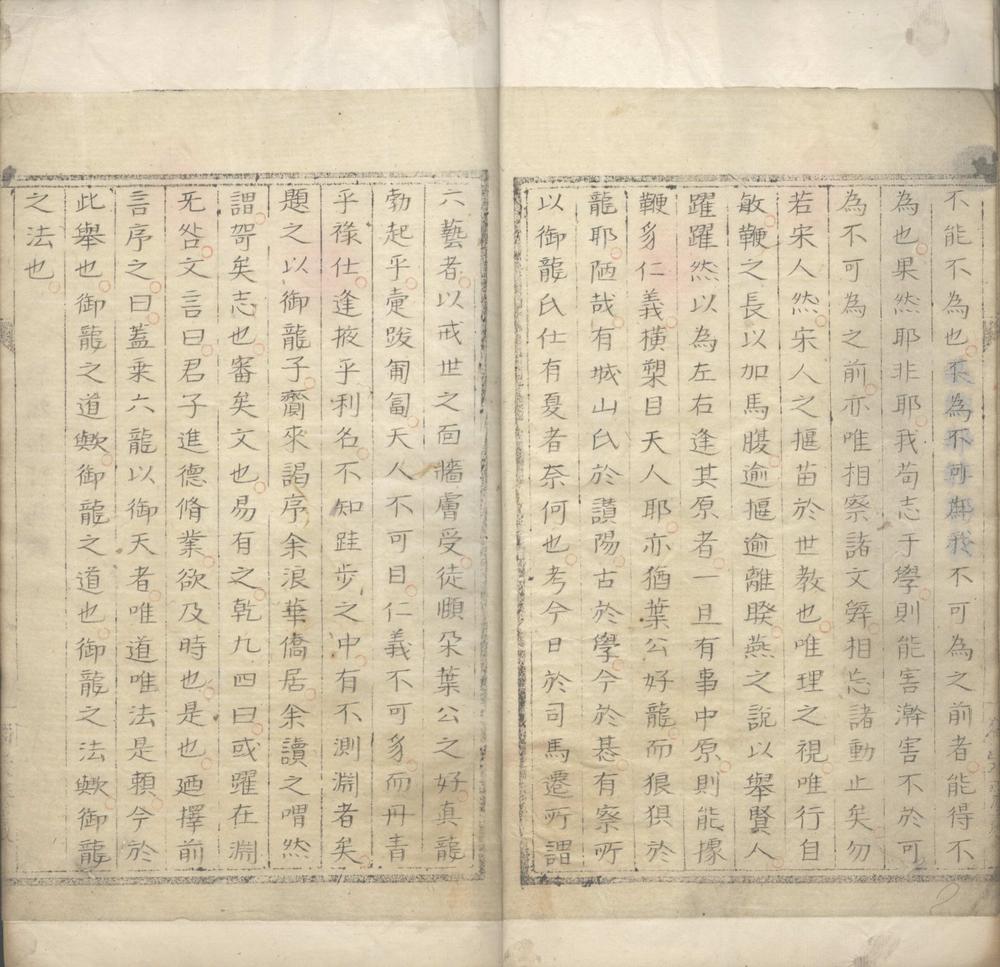 不能不為也不為不可為我不可為之前者能得不
為也果然耶非耶我苟志于學則能害澣害不於可
為不可為之前亦唯相察諸文辤相忘諸動止矣勿
若宋人然宋人之揠苗於世教也唯理之視唯行自
敏鞭之長以加馬腹逾揠逾離睽燕之說以舉賢人
躍躍然以為左右逢其原者一旦有事中原則能據
鞭豸仁義橫槊目天人耶亦猶葉公好龍而狼狽於
龍耶陋哉有城山氏於讃陽古於學今於碁有察所
以御龍氏仕有夏者奈何也考今日於司馬遷所謂
六藝者以戒世之面牆膚受徒頤朵葉公之好真龍
勃起乎疐跋匍匐天人不可目仁義不可豸而丹青
乎祿仕逢掖乎利名不知跬步之中有不測淵者矣
題之以御龍子齎來謁序余浪華僑居余讀之喟然
謂哿矣志也審矣文也易有之乾九四曰或躍在淵
旡咎文言曰君子進德脩業欲及時也是也廼擇前
言序之曰蓋乘六龍以御天者唯道唯法是賴今於
此舉也御龍之道歟御龍之道也御龍之法歟御龍
之法也